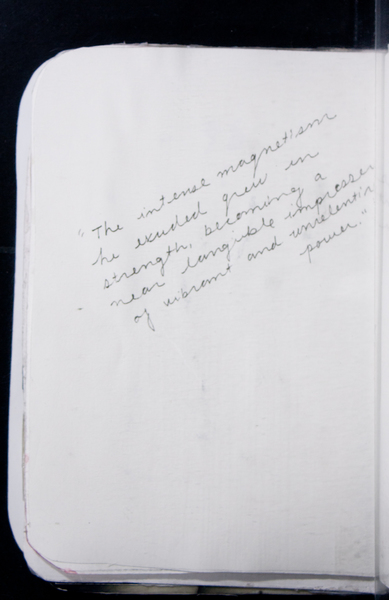 "The intense magnetism
he exuded grew in
strength, becoming a
near tangible impresser
of vibrant and unrelentin
power."